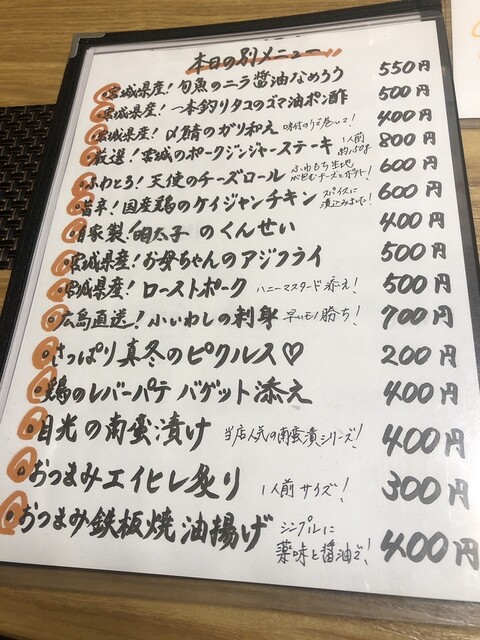 本日の別メニュー
宮城県産！旬魚のニラ醤油なめろう 550円
宮城県産！一本釣りタコのゴマ油ポン酢 500円
宮城県産！〆鯖のガリ和え 味付のりを巻いて！ 400円
厳選！宮城のポークジンジャーステーキ 1人前約150g 800円
ふわとろ！天使のチーズロール ふわもち生地が包むチーズとポテト！ 600円
旨辛！国産鶏のケイジャンチキン スパイスに漬込みました！ 600円
自家製！明太子のくんせい 400円
宮城県産！お母ちゃんのアジフライ 500円
宮城県産！ローストポーク ハニーマスタード添え！ 500円
広島直送！小いわしの刺身 早いモノ勝ち！ 700円
さっぱり真冬のピクルス♡ 200円
鶏のレバーパテ バゲット添え 400円
目光の南蛮漬け 当店人気の南蛮漬シリーズ！ 400円
おつまみエイヒレ炙り 1人前サイズ！ 300円
おつまみ鉄板焼油揚げ シンプルに薬味と醤油で！ 400円